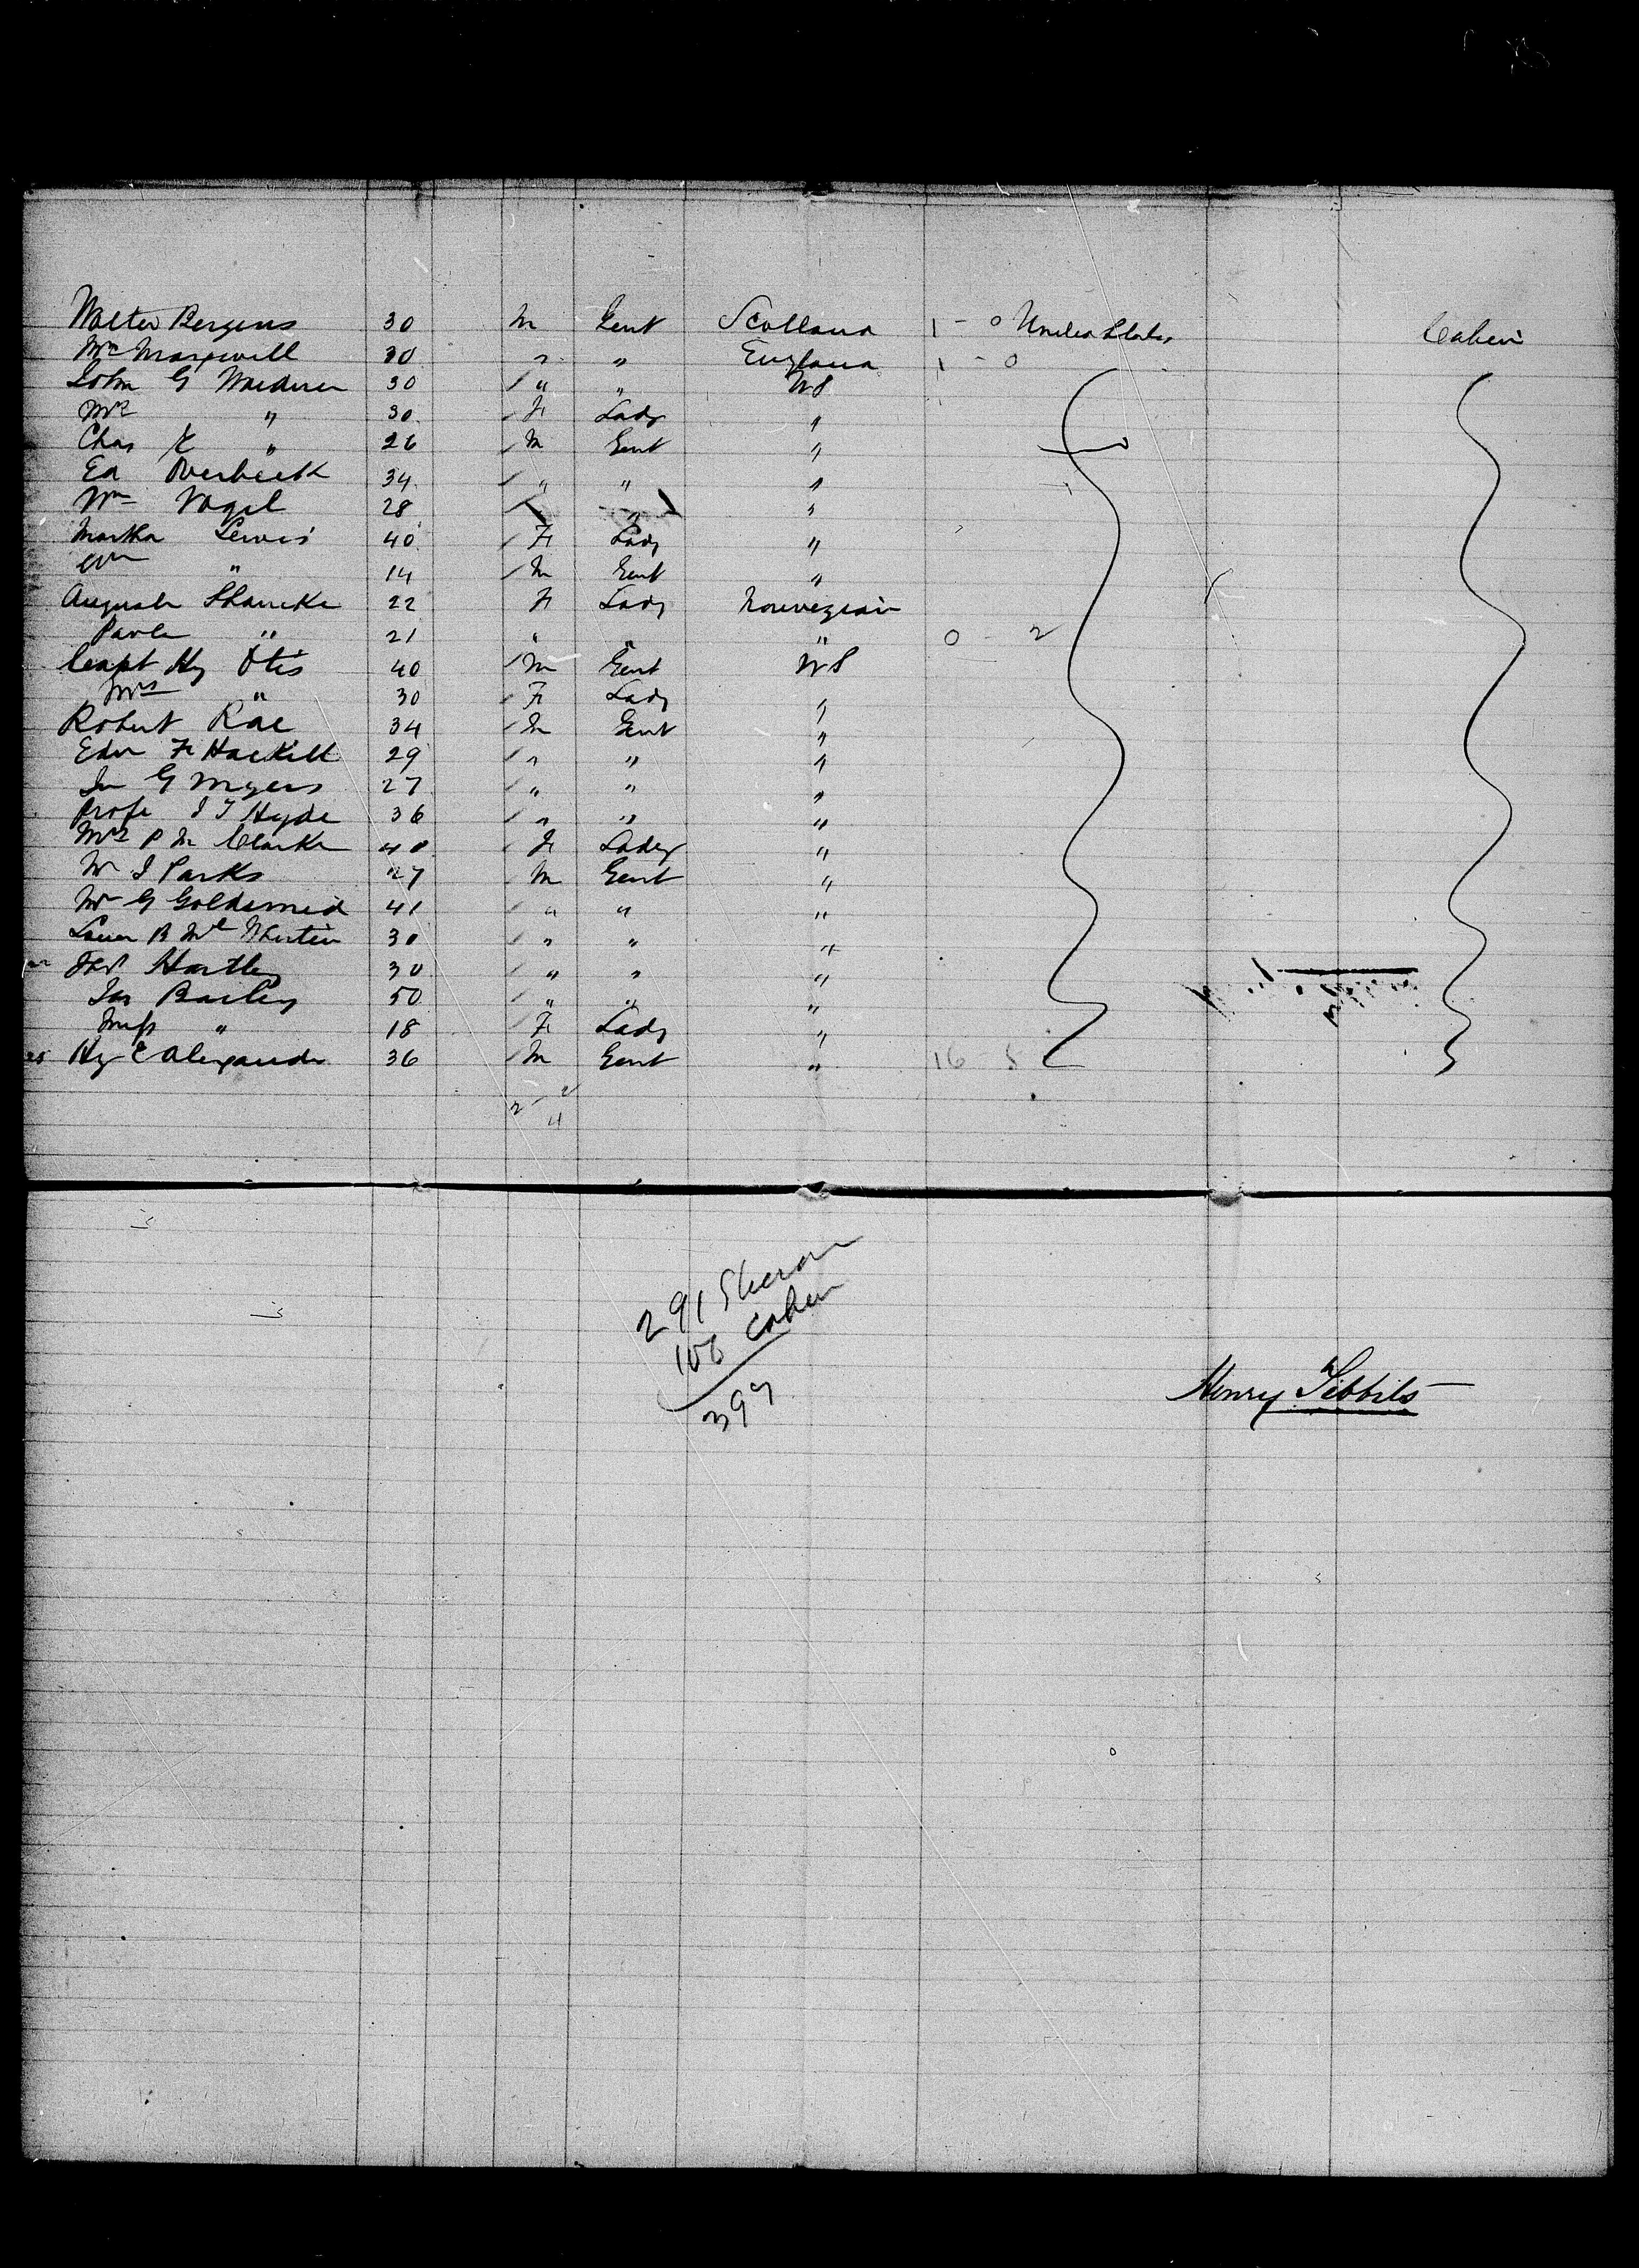 Walter Bergens 30 M Gent Scotland 1 - 0 United States Cabin
Mr Maxwell 30 " " England 1 - 0
John G 30 " " US
Mrs " 30 F Lady "
Chas E " 26 M Gent "
Ed Overbeck 34 " " "
Wm Vogel 28 " "
Martha Lewis 40 F Lady "
Wm " 14 M Gent "
Augusta 22 F Lady Norwegian
" 21 " " " 0 - 2
Capt Hy Otis 40 M Gent US
Mrs " 30 F Lady "
Robert Rae 34 M Gent "
Edw F Hackett 29 " " "
G Myers 27 " " "
Profe J T Hyde 36 " " "
Mrs P M Clarke 40 F Lady "
W J Parks 27 M Gent "
Mr G Goldsmid 41 " " "
30 " " "
Hartley 30 " " "
Jas Bailey 50 " " "
Miss " 18 F Lady "
25 Hy C Alexander 36 M Gent " 16 - 5
2 - 2
4
291 Steerage
106 Cabin
397
Henry Tibbits